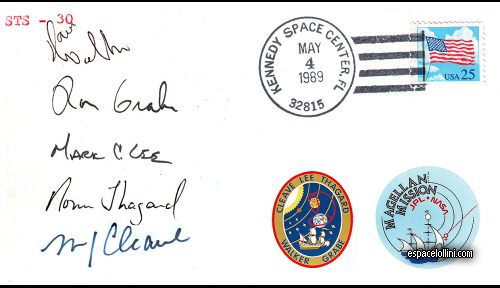 STS - 30
Dave
Walker
Ron Grabe
MARK C. LEE
Norm Thagard
M J Cleave
KENNEDY SPACE CENTER, FL
MAY
4
1989
32815
USA 25
CLEAVE LEE THAGARD
WALKER GRABE
MAGELLAN
MISSION
JPL NASA
espacelollini.com